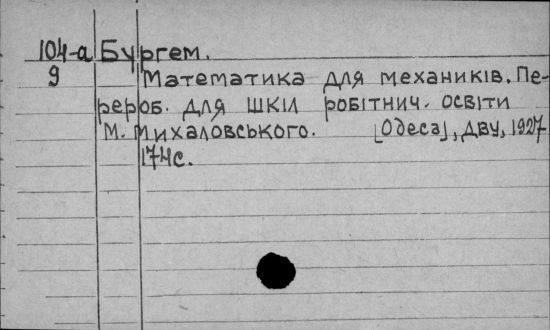 104-а Бургем.
9 Математика для механиків. Пе-
рероб. для шкіл робітнич. освіти
М. Михаловського. [Одеса], ДВУ, 1927
174с.